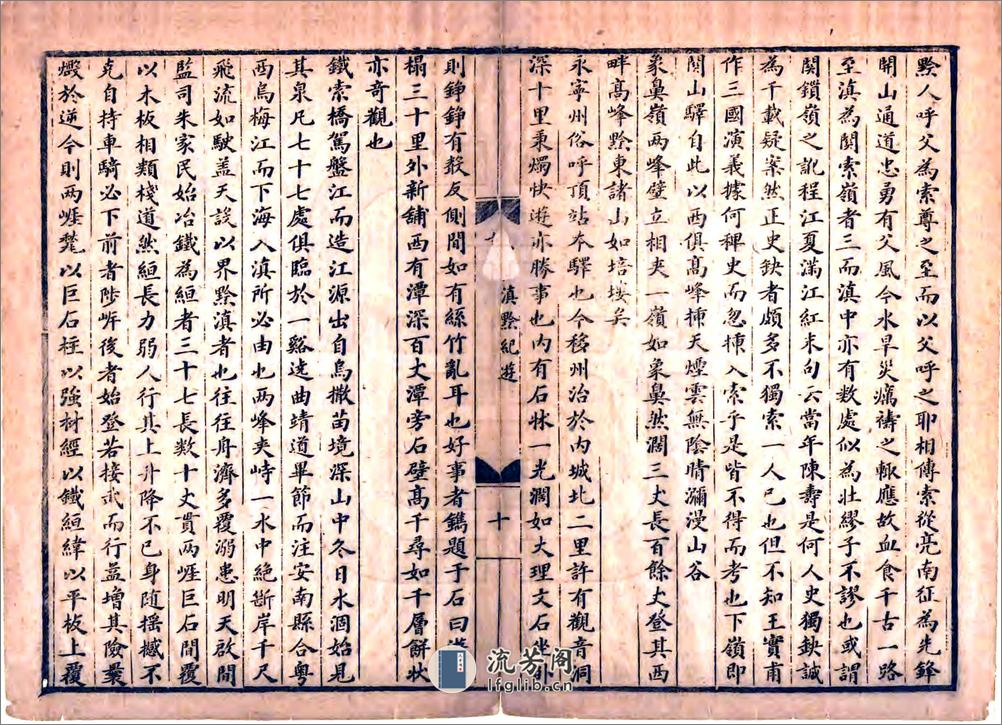 黔人呼父為索尊之至而以父呼之耶相傳索從亮南征為先鋒
開山通道忠勇有父風今水旱災癘禱之輒應故血食千古一路
至滇為關索嶺者三而滇中亦有數處似為壯繆子不謬也或謂
關鎖嶺之訛程江夏滿江紅末句云當年陳壽是何人史獨缺誠
為千載疑案然正史缺者頗多不獨索一人已也但不知王實甫
作三國演義據何稗史而忽揀入索于是皆不得而考也下嶺即
關山驛自此以西俱高峰揷天煙雲無陰晴瀰漫山谷
象鼻嶺兩峰壁立相夾一嶺如象鼻然濶三丈長百餘丈登其西
畔髙峰黔東諸山如培塿矣
永寧州俗呼頂站本驛也今移州治於內城北二里許有觀音洞
深十里秉燭快遊亦勝事也內有石牀一光潤如大理文石坐卧
滇黔紀遊
十
則錚錚有殸反側間如有絲竹亂耳也好事者鐫題于石曰遊
榻三十里外新舖西有潭深百丈潭旁石壁髙千尋如千層餅狀
亦奇觀也
鐵索橋駕盤江而造江源出自烏撒苗境深山中冬日水涸始見
其泉凡七十七處俱臨於一谿遶曲靖道畢節而注安南縣合粵
西烏梅江而下海入滇所必由也兩峰夾峙一水中絶斷岸千尺
飛流如駛盖天設以界黔滇者也往往舟濟多覆溺患明天啟間
監司朱家民始冶鐵為絙者三十七長數十丈貫兩崖巨石間覆
以木板相類棧道然絙長力弱人行其上升降不已身隨搖撼不
克自持車騎必下前者陟岸後者始登若接武而行葢增其險纍
燬於逆今則兩崖甃以巨石柱以強材經以鐵絙緯以平板上覆
流芳阁
lfglib.cn